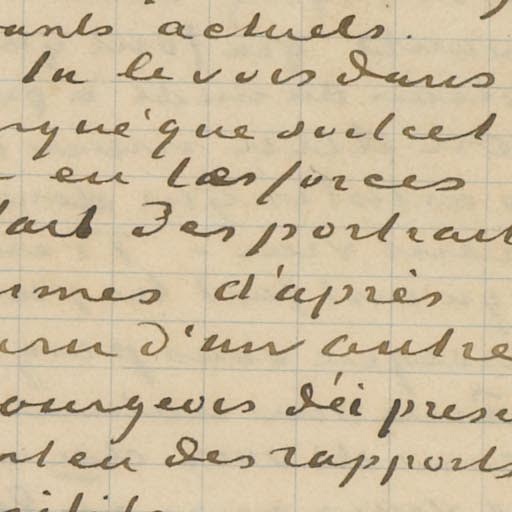 ants actuels.
Tu le vois dans
que soit cet
en les forces
fait des portrait
rmes d'après
d'un autre
ourgeois d'ici prese
et eu des rapports